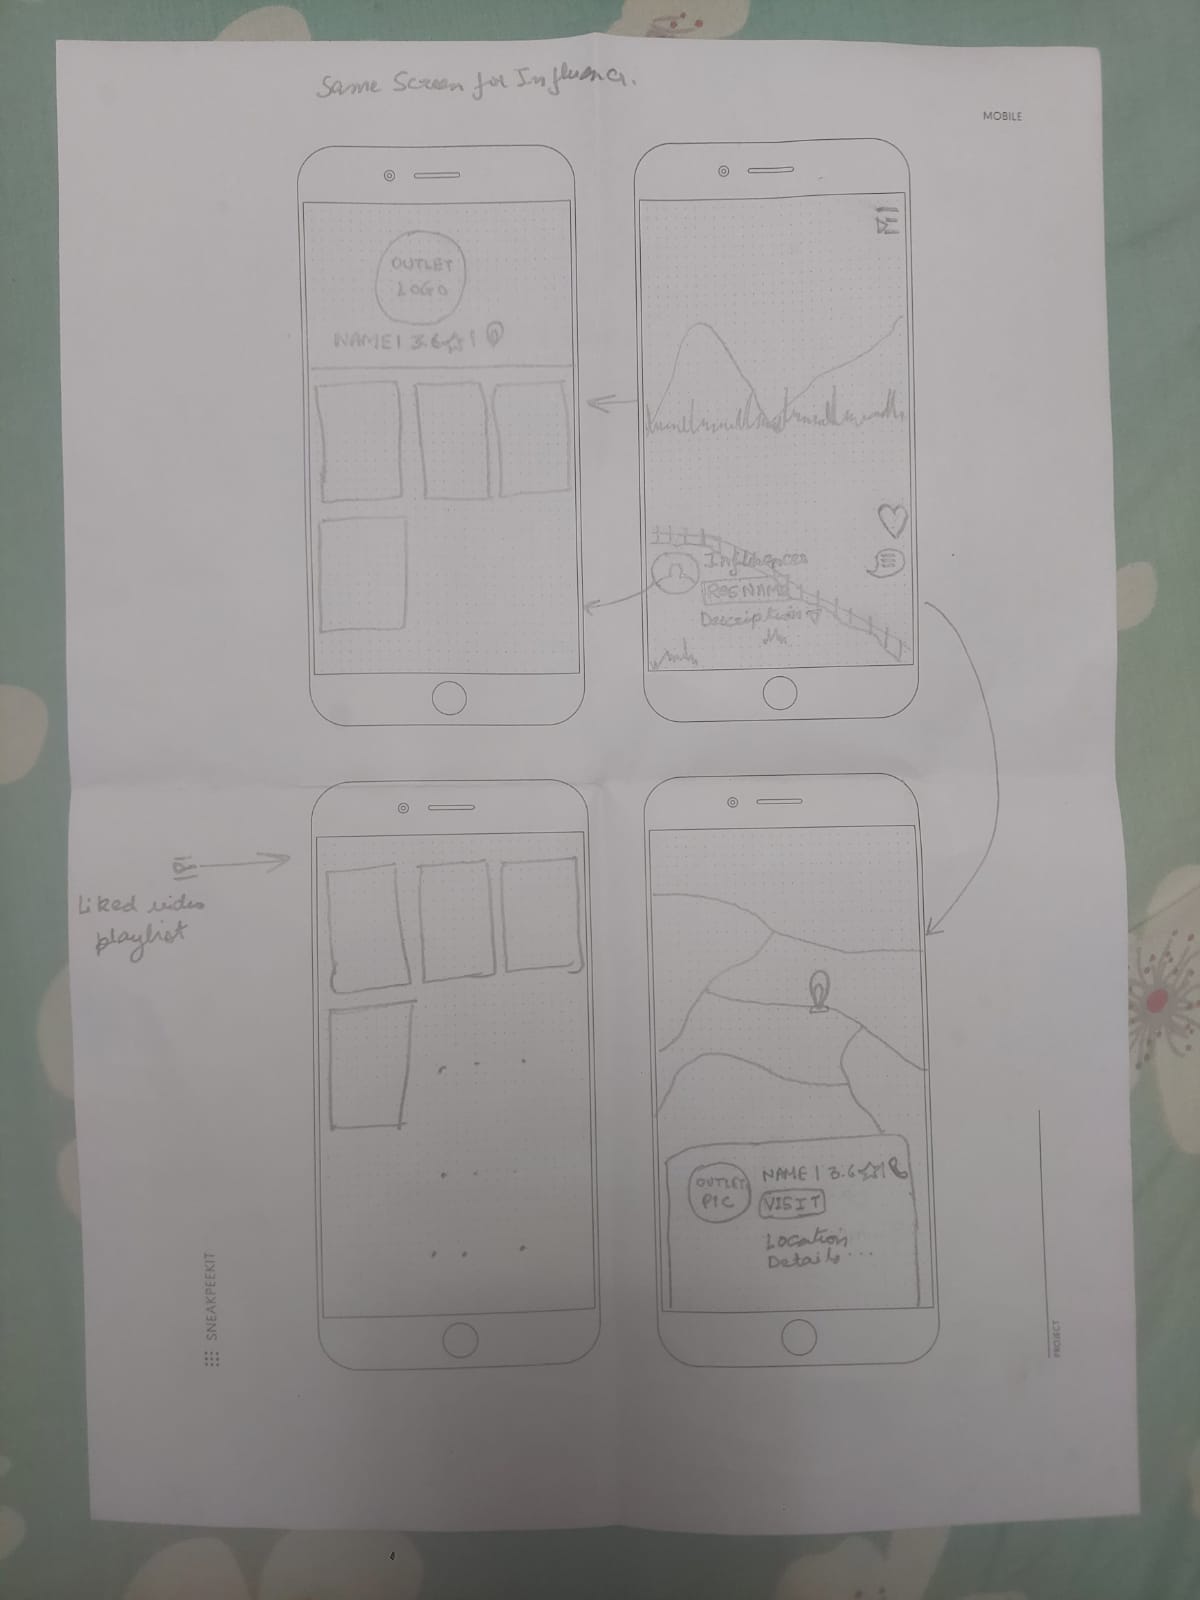 Same Screen for Influencr.
MOBILE
OUTLET
LOGO
NAME | 3.6☆ |
Influences
RES NAME
Description
Liked video
playlist
OUTLET
PIC
NAME | 3.6☆ |
VISIT
Location
Details ...
SNEAKPEEKIT
PROJECT